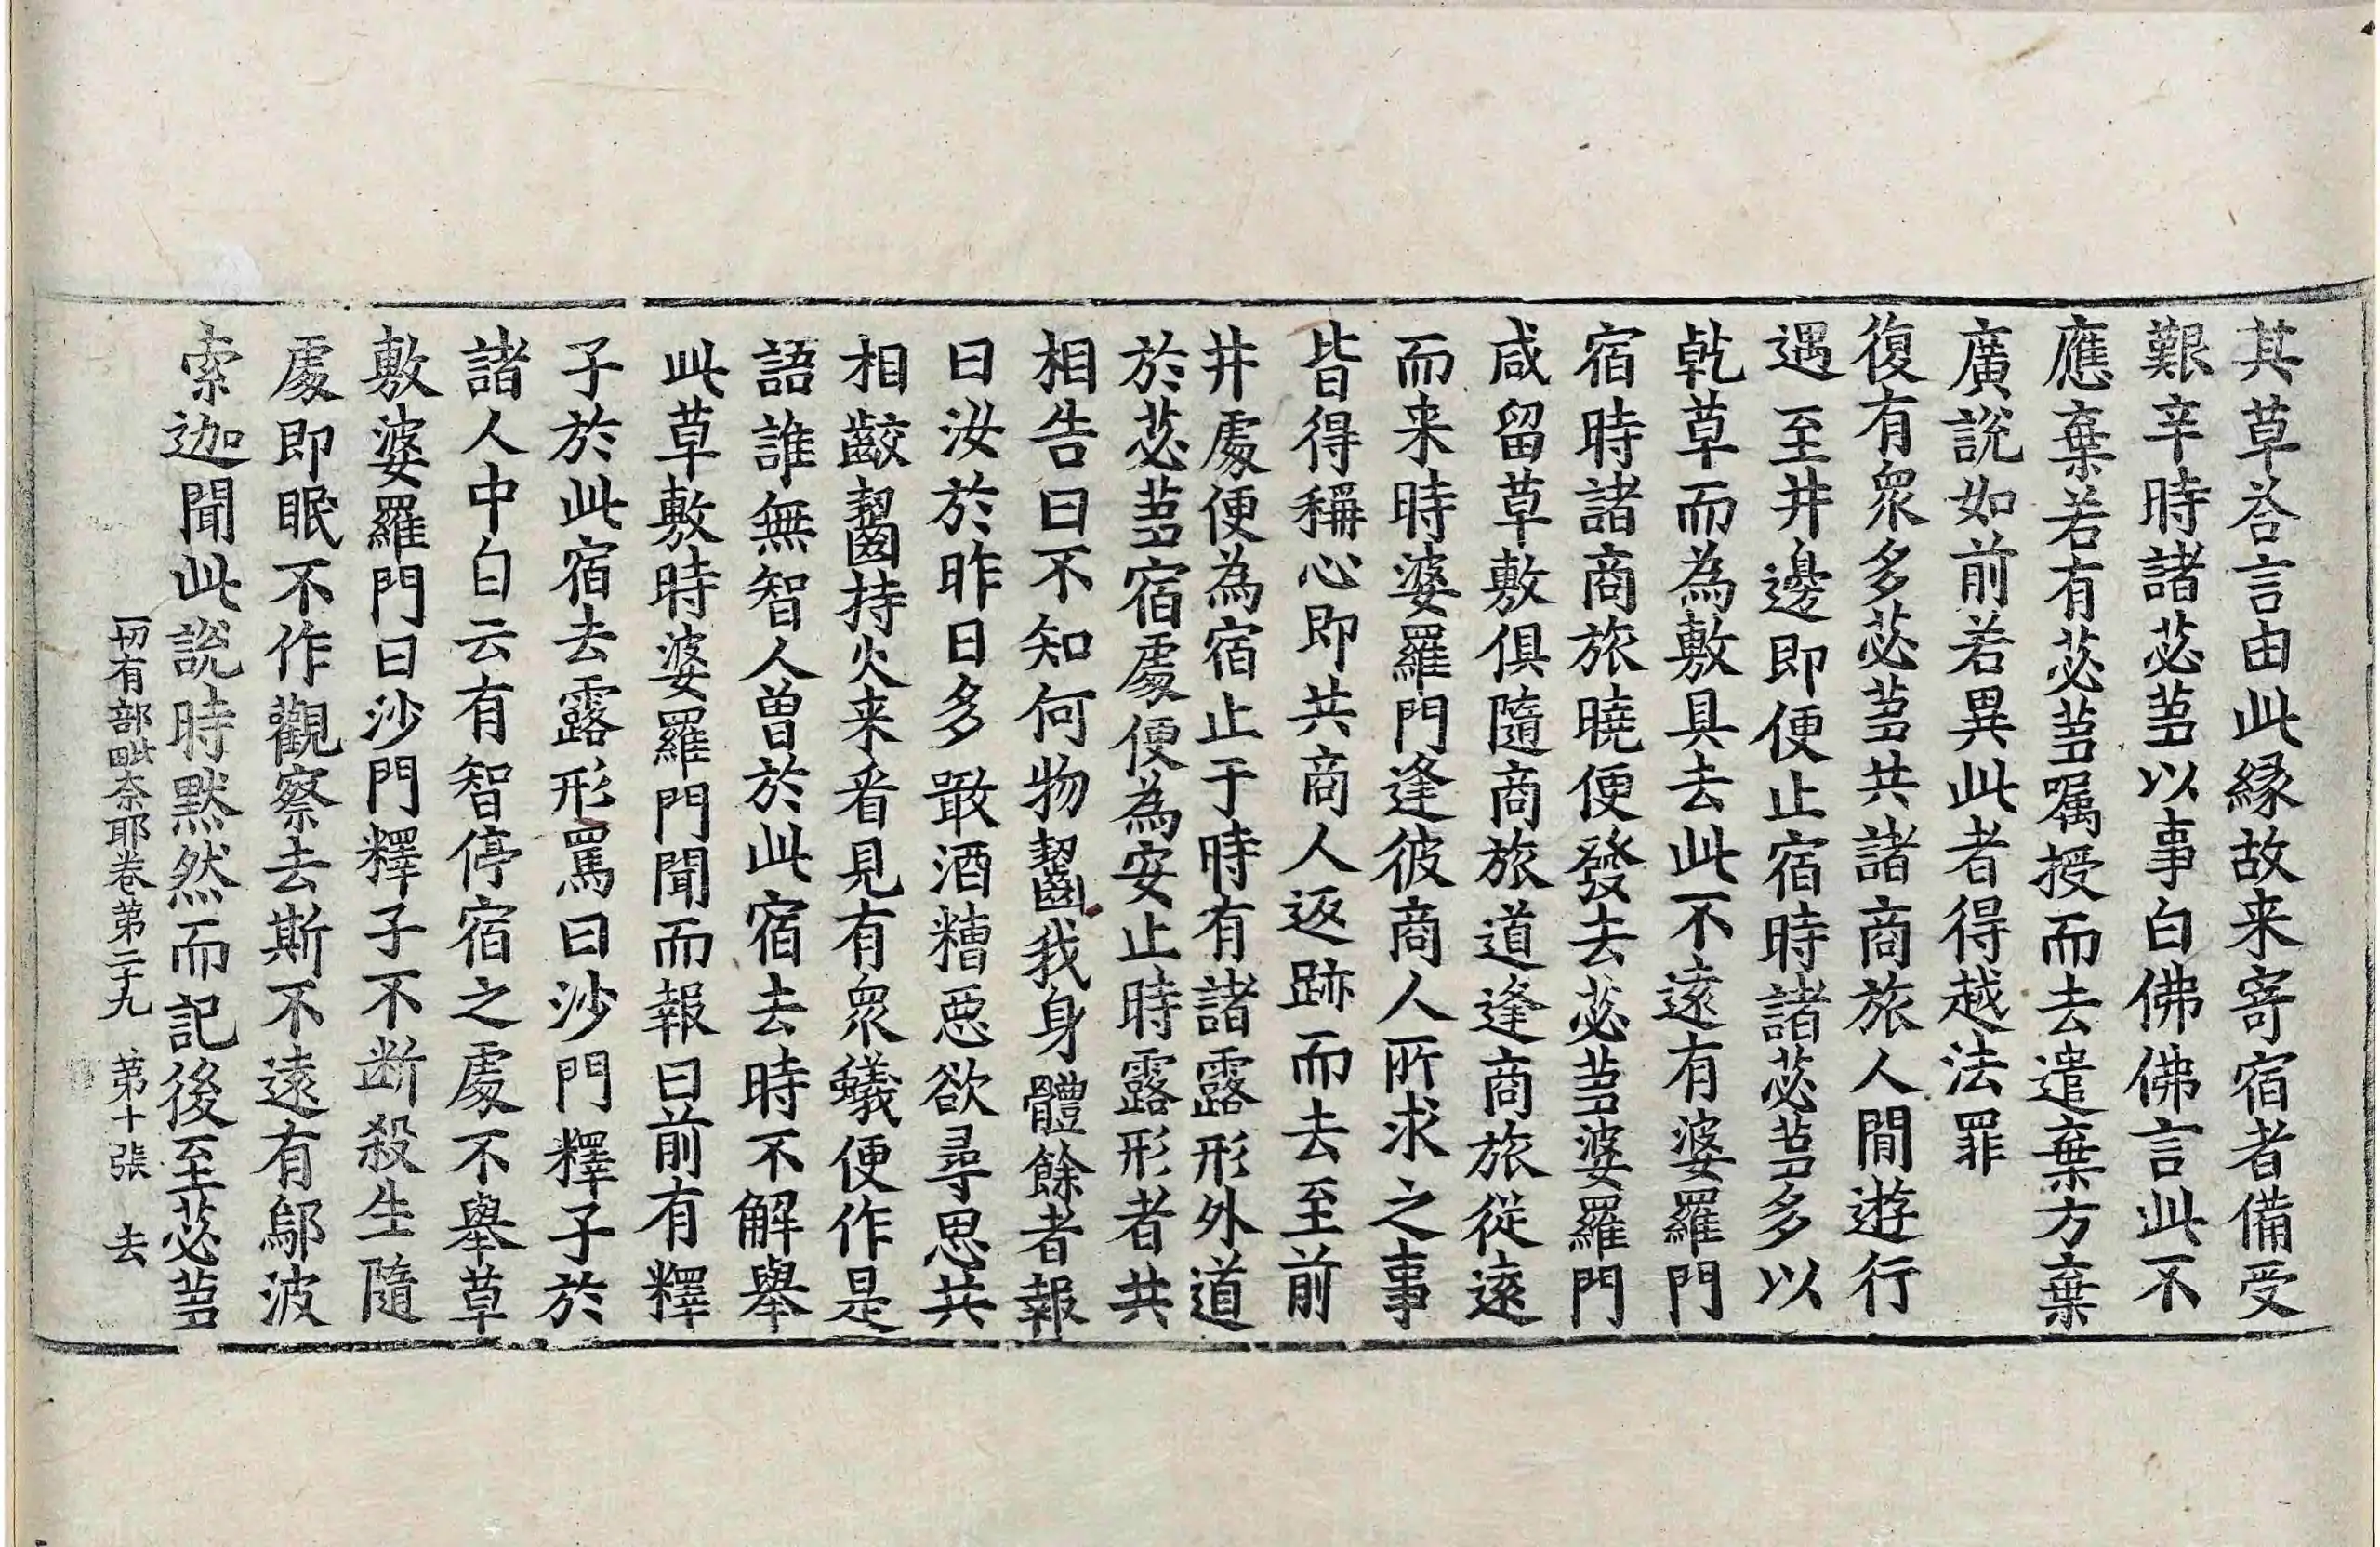 其草荅言由此縁故来寄宿者備受
艱辛時諸苾蒭以事白佛佛言此不
應棄若有苾蒭囑授而去遣棄方棄
廣說如前若異此者得越法罪
復有衆多苾蒭共諸商旅人間遊行
遇至井邊即便止宿時諸苾蒭多以
乹草而為敷具去此不遠有婆羅門
宿時諸商旅曉便發去苾蒭婆羅門
咸留草敷俱隨商旅道逢商旅從遠
而来時婆羅門逢彼商人所求之事
皆得稱心即共商人返跡而去至前
井處便為宿止于時有諸露形外道
於苾蒭宿處便為安止時露形者共
相告曰不知何物齧我身體餘者報
曰汝於昨日多噉酒糟悪欲尋思共
相齩齧持火来看見有衆蟻便作是
語誰無智人曾於此宿去時不解舉
此草敷時婆羅門聞而報曰前有釋
子於此宿去露形罵曰沙門釋子於
諸人中白云有智停宿之處不舉草
敷婆羅門曰沙門釋子不断殺生隨
處即眠不作觀察去斯不遠有鄔波
索迦聞此說時默然而記後至苾蒭
一切有部毗奈耶卷第二十九 第十張 去